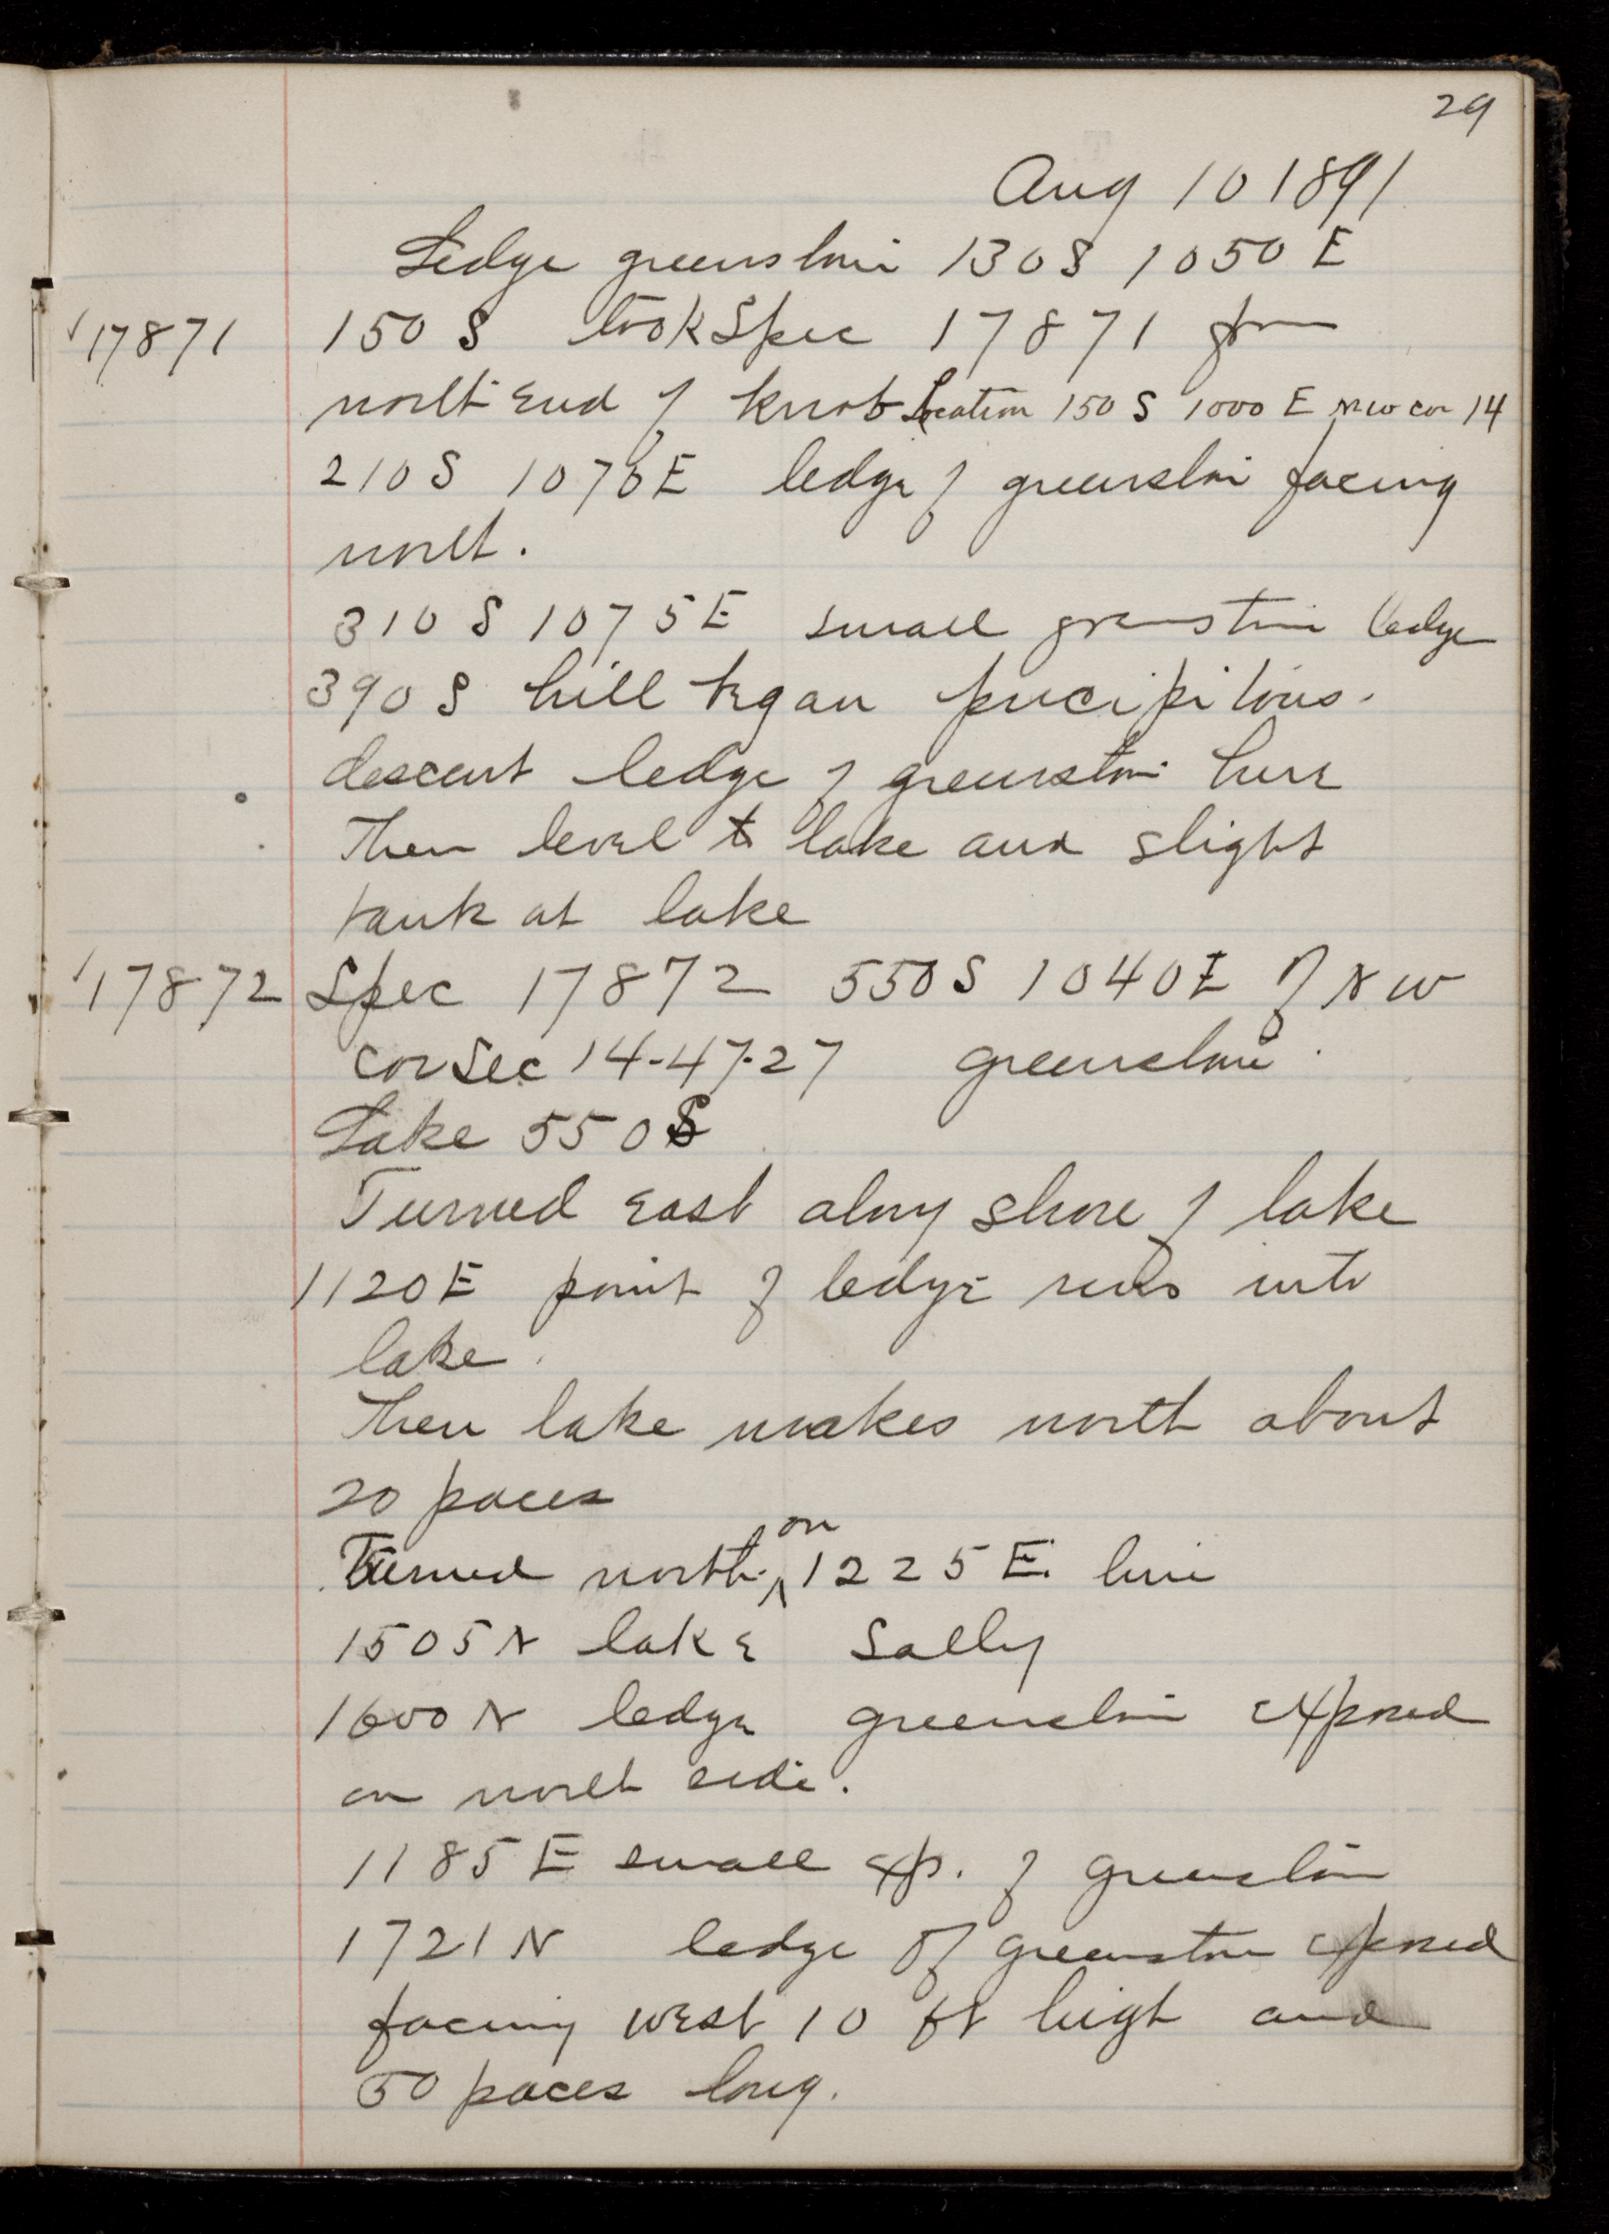 29
Aug 10 1891
Ledge greenstone 130 S 1050 E
17871 150 S took Spec 17871 from
north end of knob Location 150 S 1000 E NW cor 14
210 S 1075 E ledge of greenstone facing
north.
310 S 1075 E small greenstone ledge
390 S hill began precipitous
descent ledge of greenstone here
Then level to lake and slight
bank at lake
17872 Spec 17872 550 S 1040 E of N W
cor Sec 14-47-27 greenstone.
Lake 550 S
Turned east along shore of lake
1120 E point of ledge runs into
lake.
Then lake makes north about
20 paces
Turned north on 1225 E. line
1505 N lake Sally
1600 N ledge greenstone exposed
on north side.
1185 E small exp. of greenstone
1721 N ledge of greenstone exposed
facing west 10 ft high and
50 paces long.